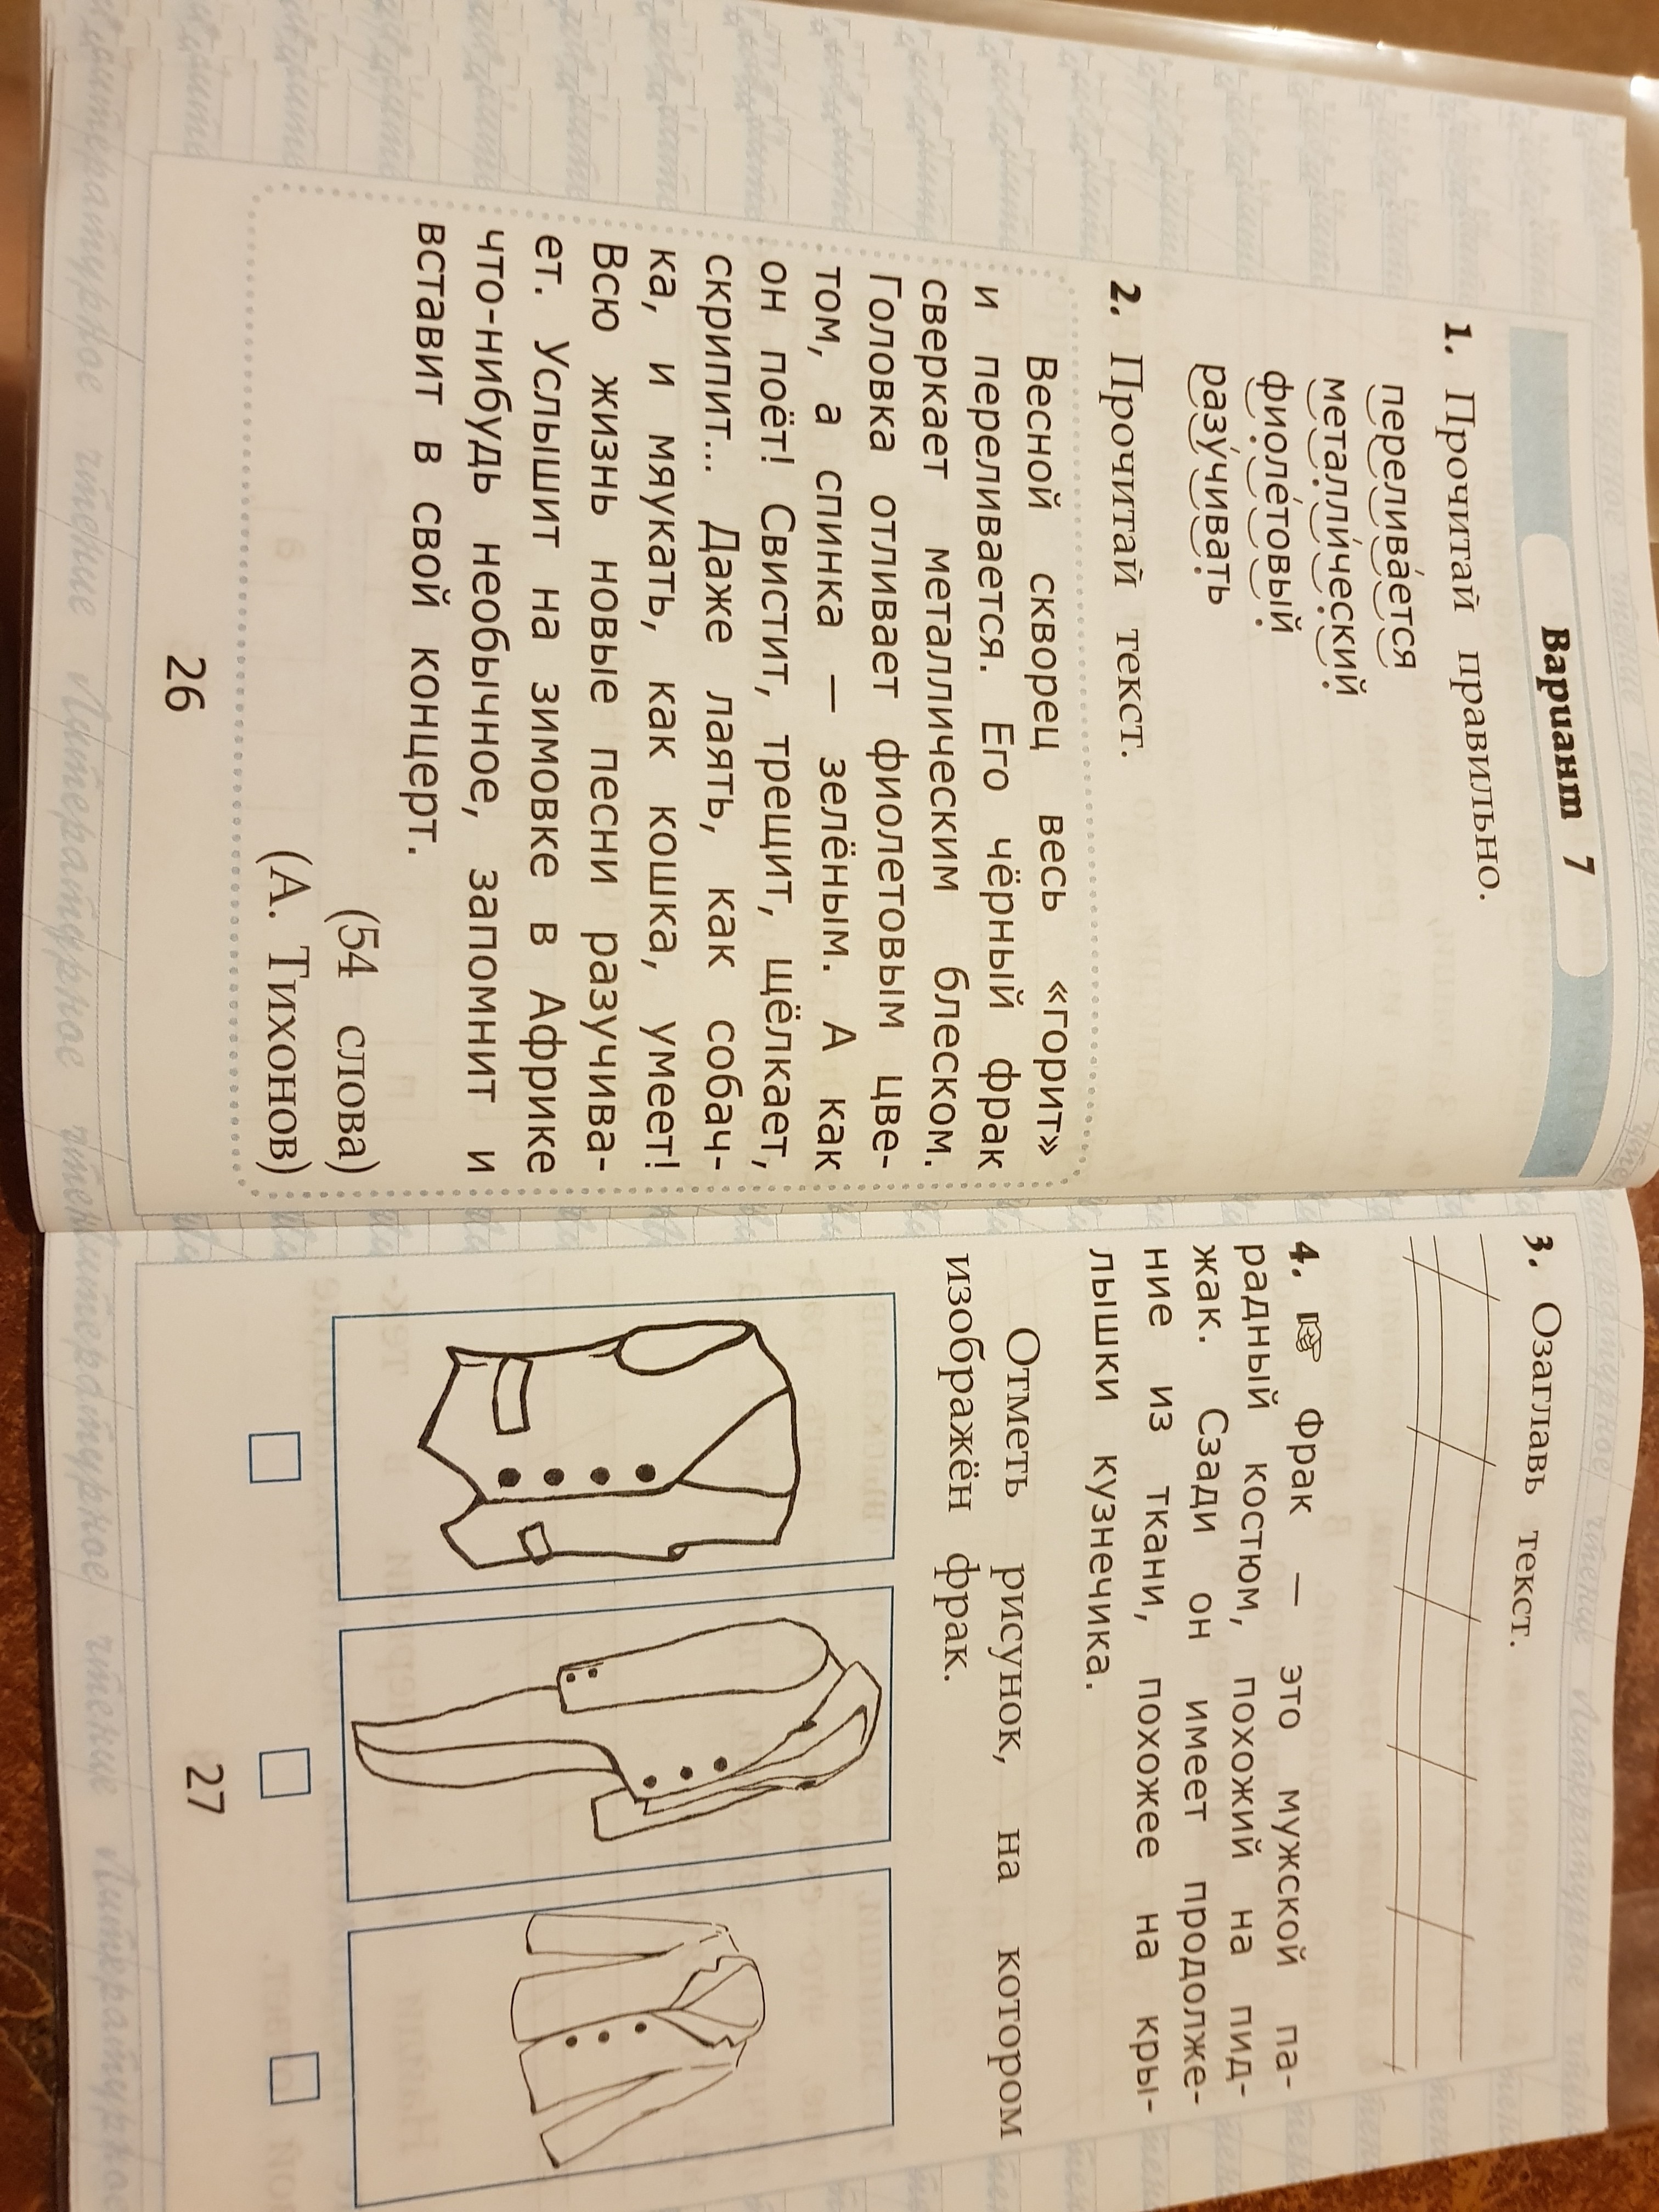 Вариант 7
1. Прочитай правильно.
перелива́ется
металли́ческий
фиоле́товый
разу́чивать
2. Прочитай текст.
Весной скворец весь «горит»
и переливается. Его чёрный фрак
сверкает металлическим блеском.
Головка отливает фиолетовым цве-
том, а спинка — зелёным. А как
он поёт! Свистит, трещит, щёлкает,
скрипит... Даже лаять, как собач-
ка, и мяукать, как кошка, умеет!
Всю жизнь новые песни разучива-
ет. Услышит на зимовке в Африке
что-нибудь необычное, запомнит и
вставит в свой концерт.
(54 слова)
(А. Тихонов)
26
3. Озаглавь текст.
4. ☞ Фрак — это мужской па-
радный костюм, похожий на пид-
жак. Сзади он имеет продолже-
ние из ткани, похожее на кры-
лышки кузнечика.
Отметь рисунок, на котором
изображён фрак.
27
Литературное чтение Литературное чтение
Литературное чтение Литературное